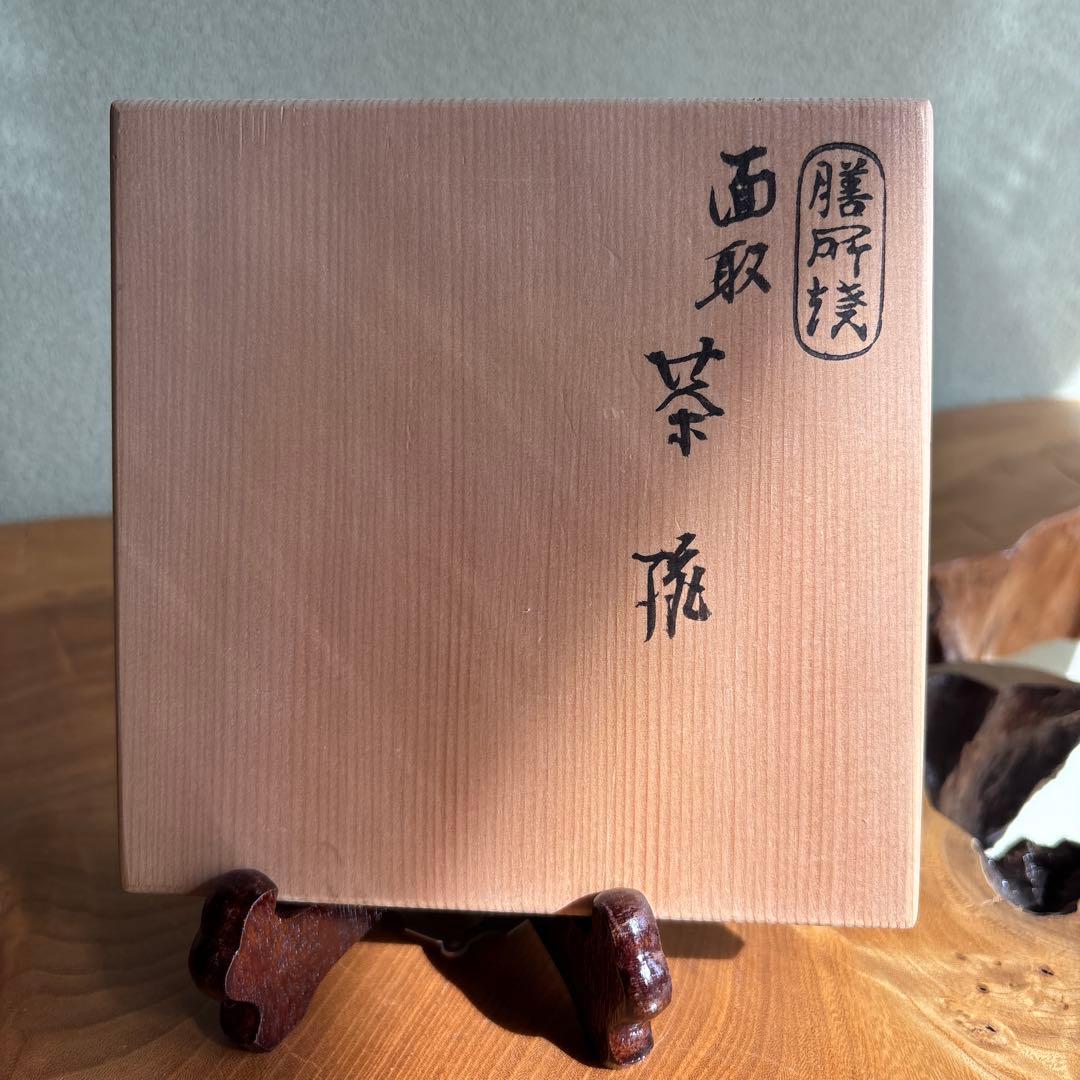 膳所焼
面取
茶碗